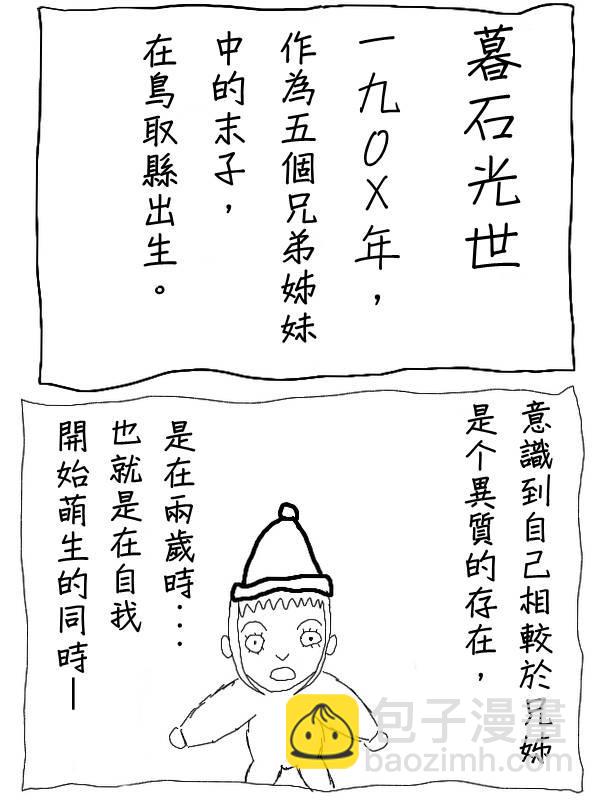 暮石光世
一九〇X年，
作為五個兄弟姊妹
中的末子，
在鳥取縣出生。
意識到自己相較於兄姊
是个異質的存在，
是在兩歲時…
也就是在自我
開始萌生的同時—
包子漫畫
baozimh.com